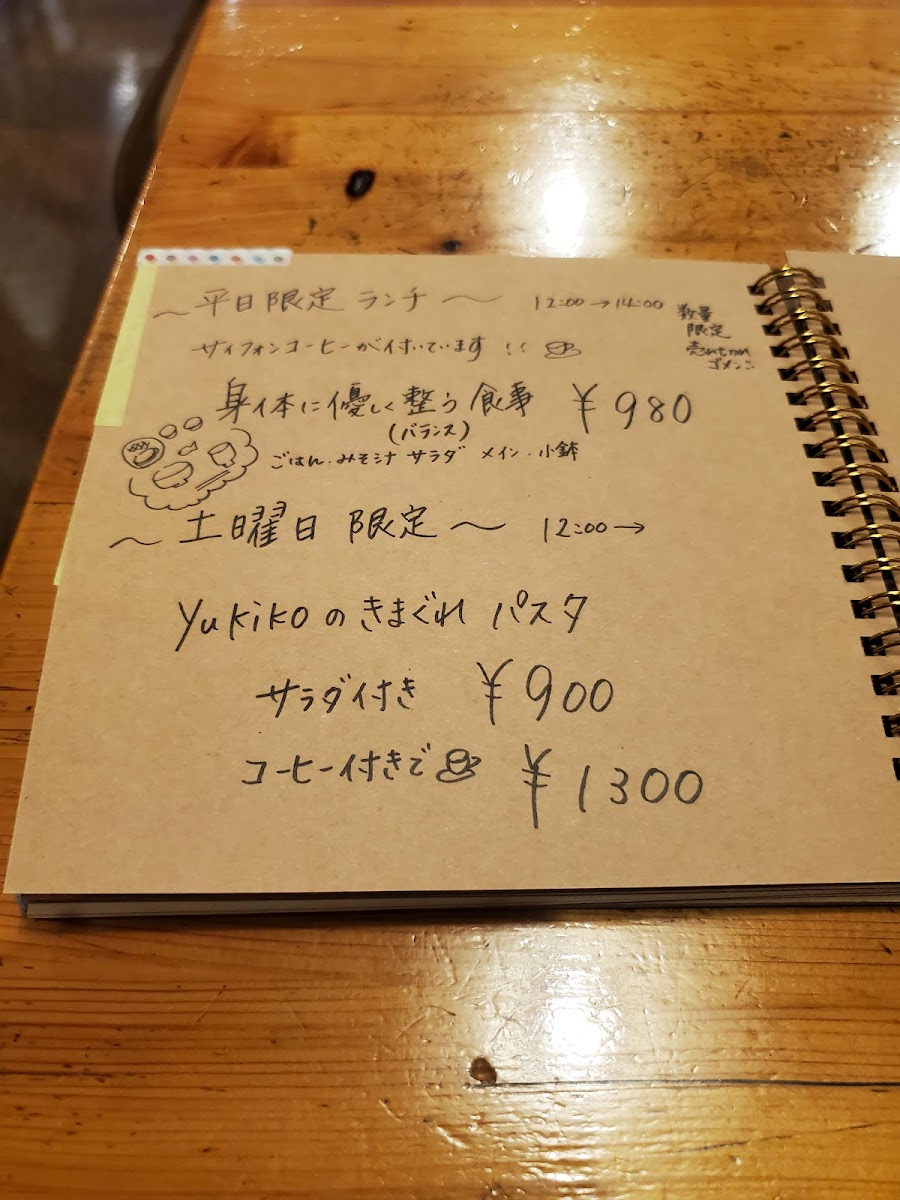 ～平日限定 ランチ～ 12:00→14:00
数量
限定
売れたれ
ゴメン
サイフォンコーヒーが付いています!!
身体に優しく整う食事 ¥980
(バランス)
ごはん・みそ汁 サラダ メイン・小鉢
～土曜日 限定～ 12:00→
Yukikoのきまぐれ パスタ
サラダ付き ¥900
コーヒー付きで ¥1300